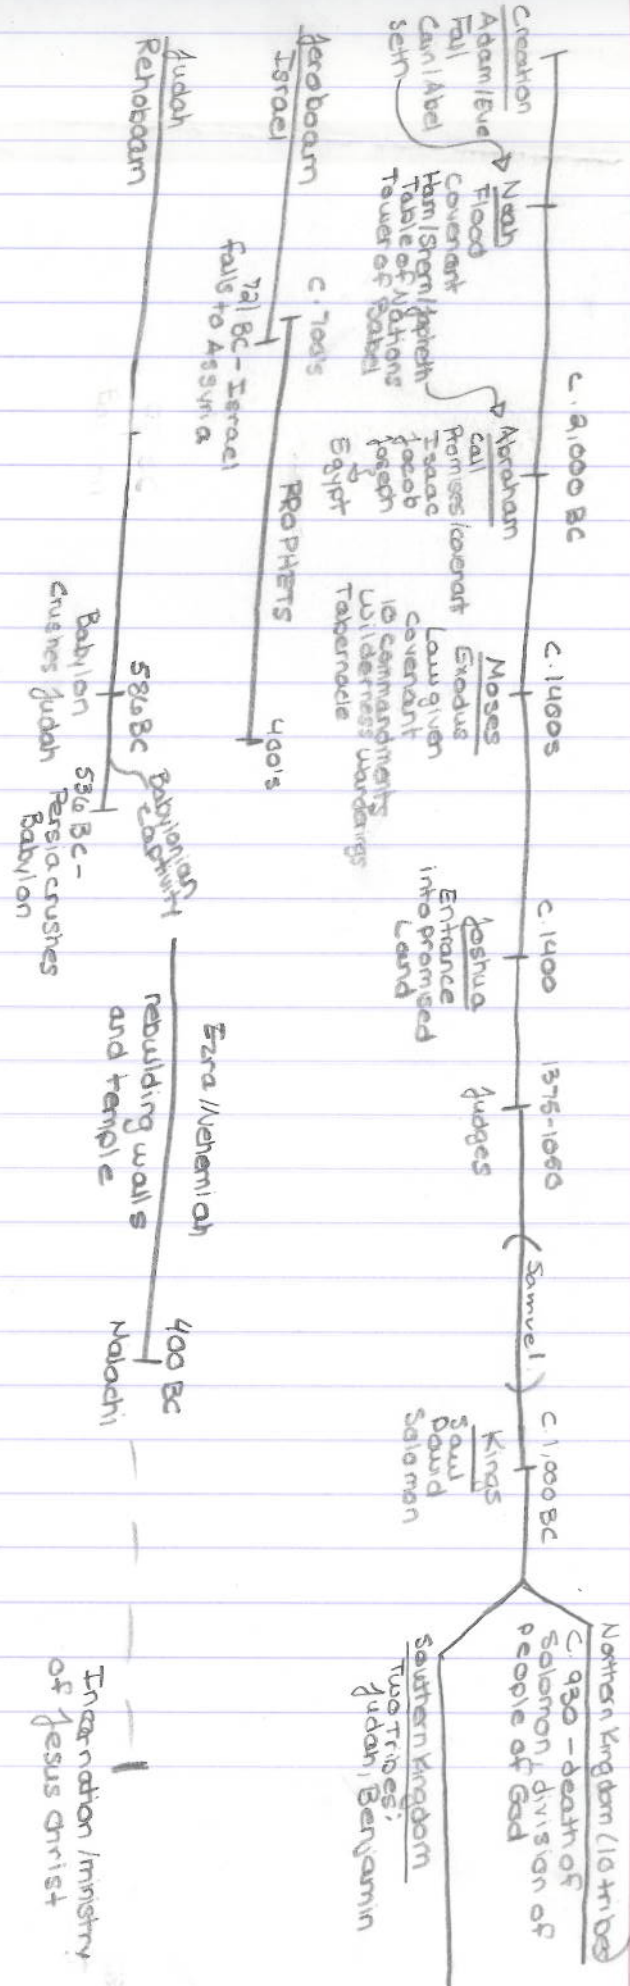 Creation
Adam/Eve
Fall
Cain/Abel
Seth
Noah
Flood
Covenant
Ham/Shem/Japheth
Table of Nations
Tower of Babel
C. 2,000 BC
Abraham
Call
Promises/covenant
Isaac
Jacob
Joseph
Egypt
C. 1400s
Moses
Exodus
Law given
Covenant
10 commandments
Wilderness wanderings
Tabernacle
C. 1400
Joshua
Entrance
into promised
Land
1375-1050
Judges
(Samuel)
C. 1,000 BC
Kings
Saul
David
Solomon
Northern Kingdom (10 tribes)
C. 930 - death of
Solomon, division of
people of God
Southern Kingdom
Two Tribes:
Judah, Benjamin
Jeroboam
Israel
C. 700's
721 BC - Israel
falls to Assyria
PROPHETS
400's
Judah
Rehoboam
586 BC
Babylon
crushes Judah
Babylonian
captivity
536 BC -
Persia crushes
Babylon
Ezra/Nehemiah
rebuilding walls
and temple
400 BC
Malachi
Incarnation/ministry
of Jesus Christ